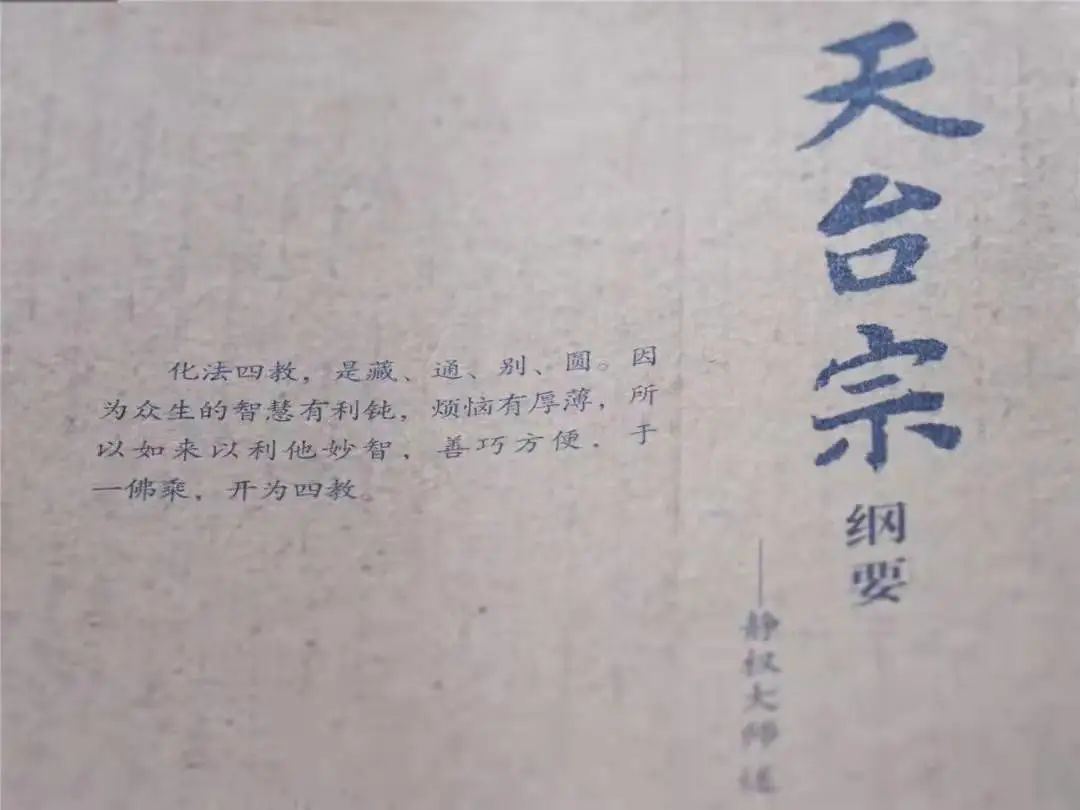 天台宗
纲要
——静权大师
化法四教，是藏、通、别、圆。因
为众生的智慧有利钝，烦恼有厚薄，所
以如来以利他妙智，善巧方便，于
一佛乘，开为四教。